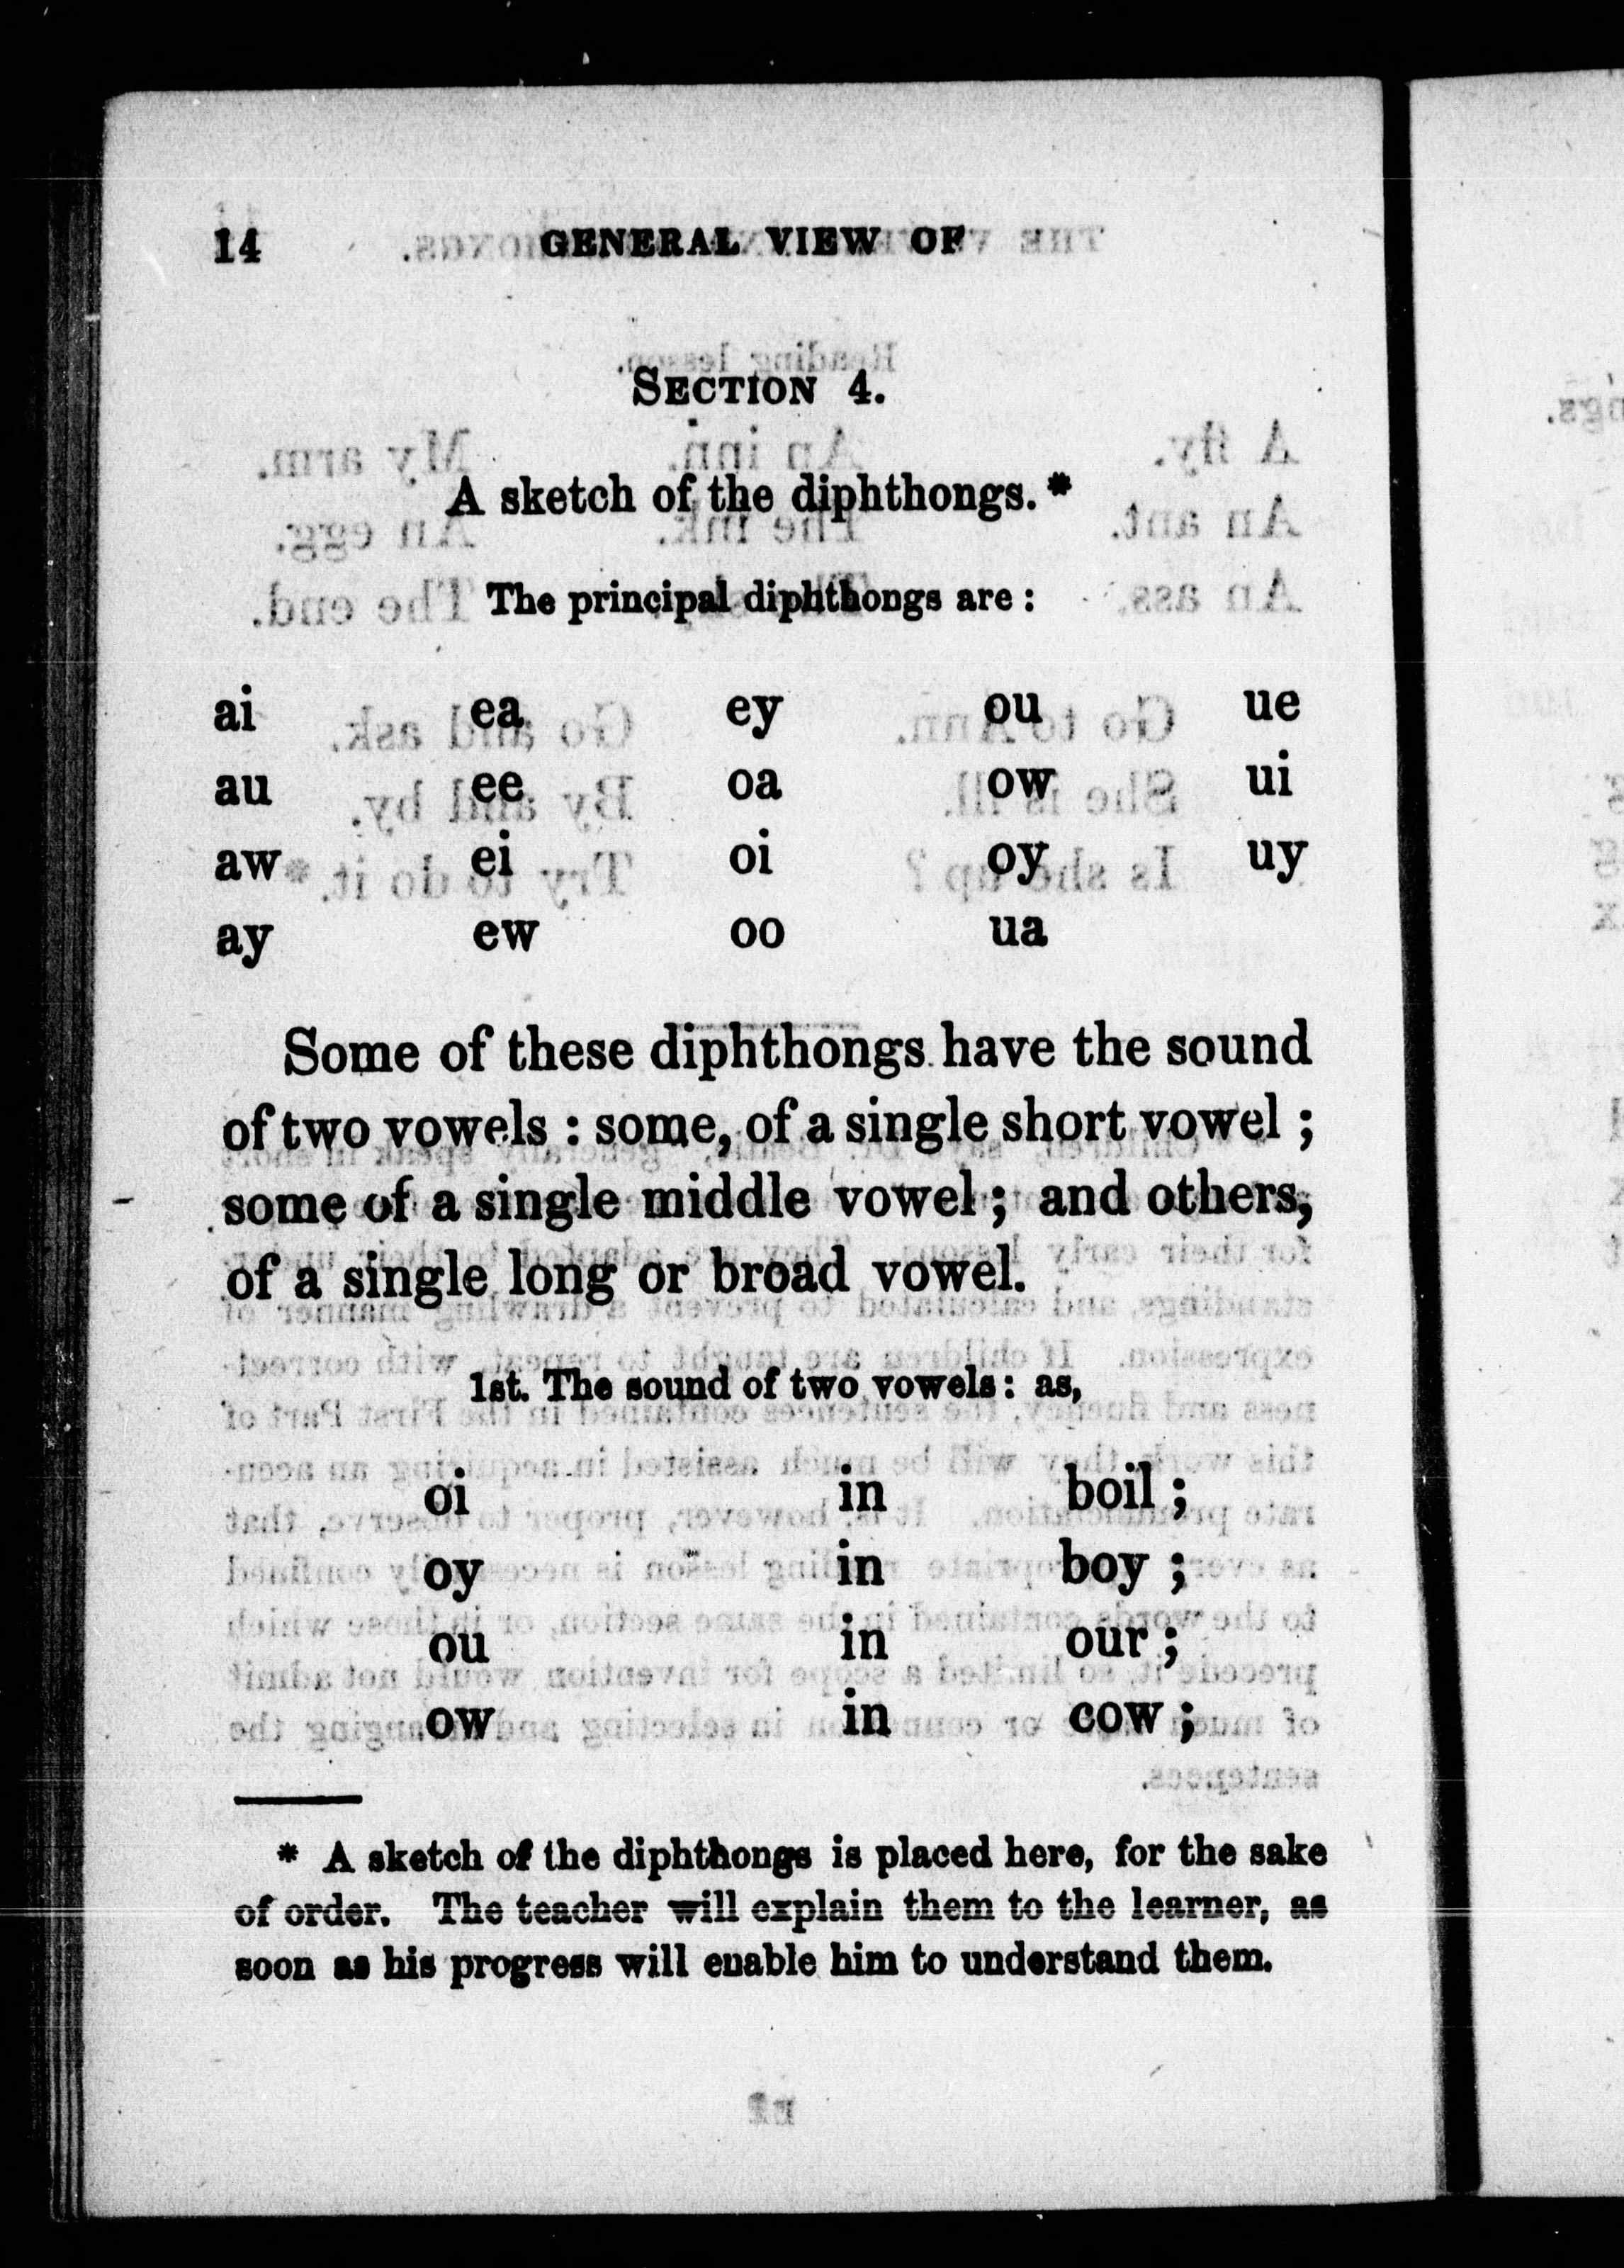 14 GENERAL VIEW OF
SECTION 4.
A sketch of the diphthongs.*
The principal diphthongs are :
ai ea ey ou ue
au ee oa ow ui
aw ei oi oy uy
ay ew oo ua
Some of these diphthongs have the sound
of two vowels : some, of a single short vowel ;
some of a single middle vowel ; and others,
of a single long or broad vowel.
1st. The sound of two vowels : as,
oi in boil ;
oy in boy ;
ou in our ;
ow in cow ;
* A sketch of the diphthongs is placed here, for the sake
of order. The teacher will explain them to the learner, as
soon as his progress will enable him to understand them.